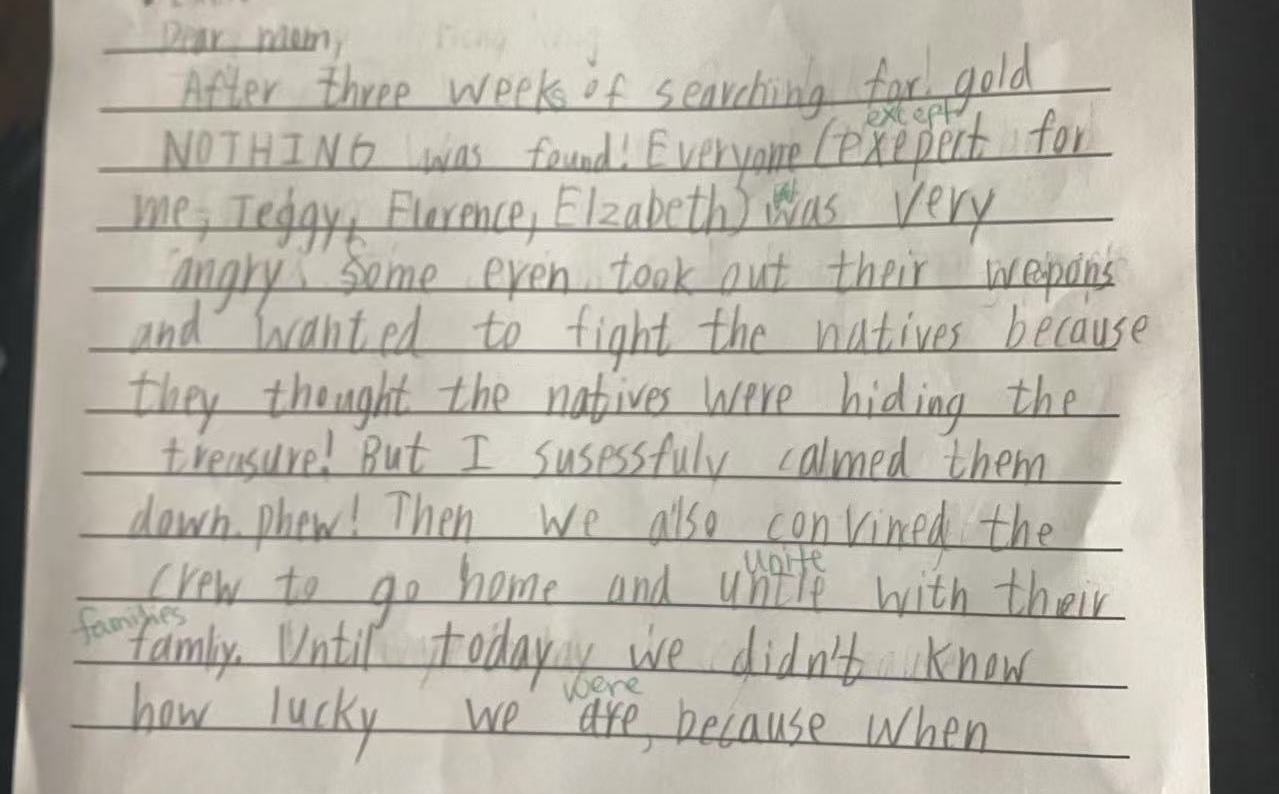 Dear mom,
After three weeks of searching for gold
except
NOTHING was found! Everyone (exepert for
me, Teggy, Florence, Elzabeth) was very
angry. Some even took out their weapons
and wanted to fight the natives because
they thought the natives were hiding the
treasure! But I susessfuly calmed them
down. phew! Then we also convined the
unite
crew to go home and untie with their
families
famliy. Until today we didn't know
were
how lucky we are, because when